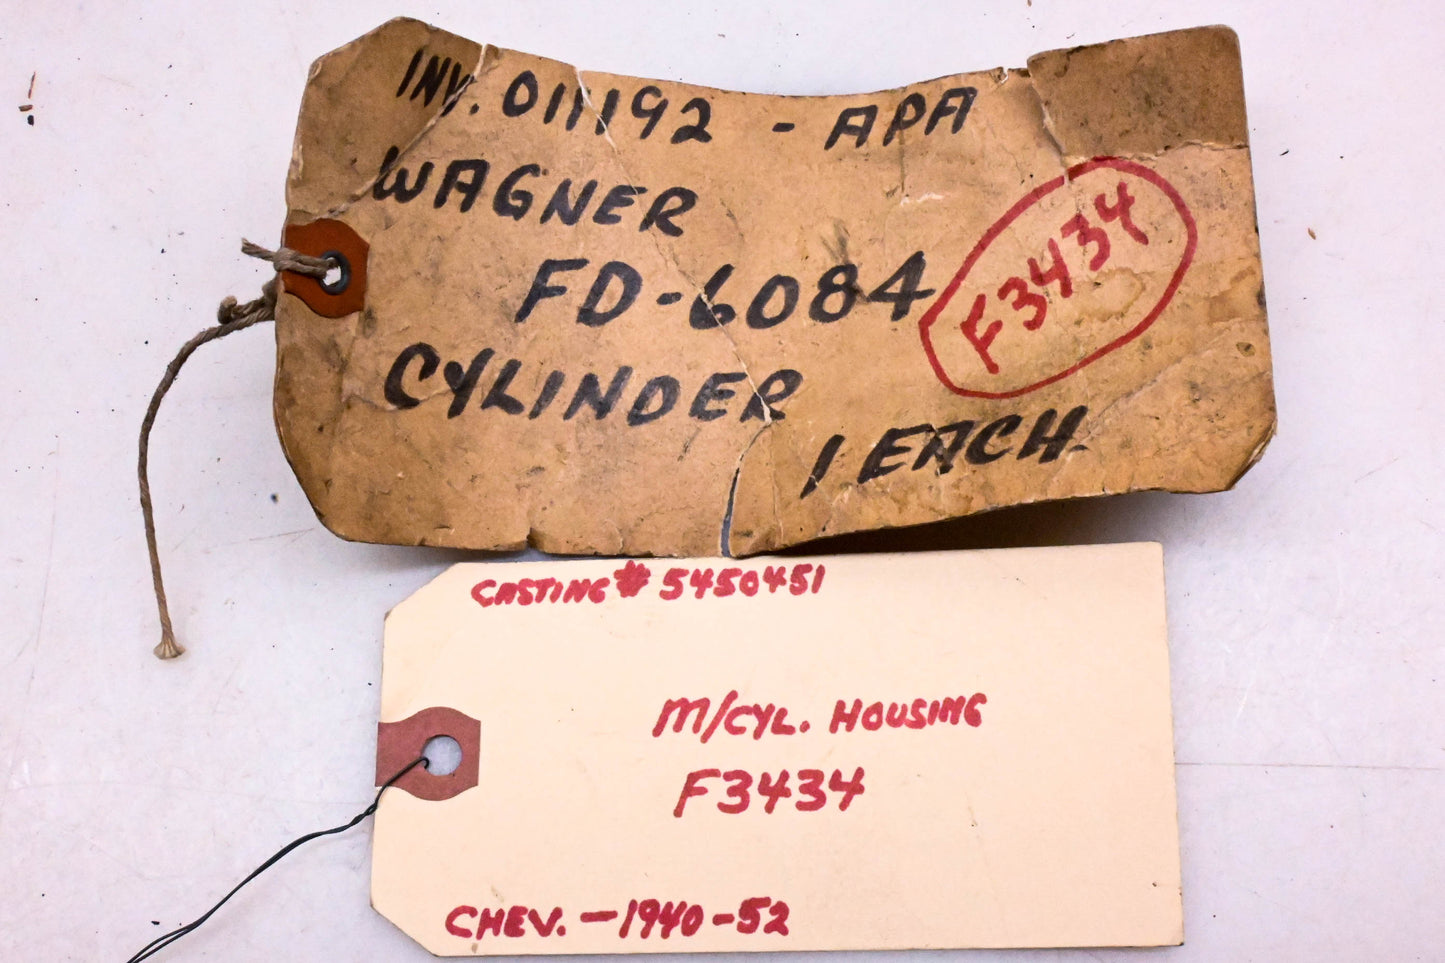 INV. 011192 - APA
WAGNER
FD-6084
F3434
CYLINDER
1 EACH.
CASTING# 5450451
M/CYL. HOUSING
F3434
CHEV. - 1940-52